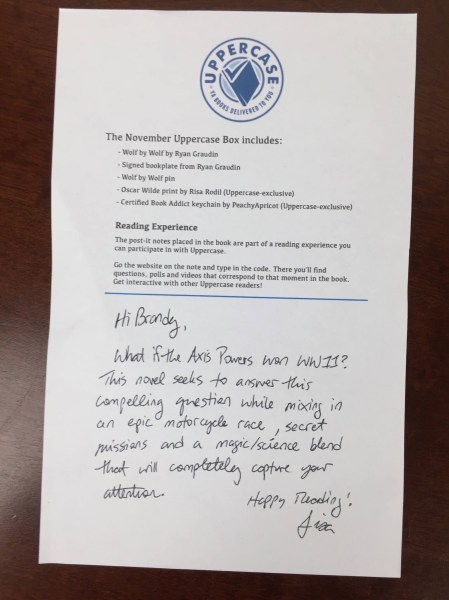 UPPERCASE
YA BOOKS DELIVERED TO YOU
The November Uppercase Box includes:
- Wolf by Wolf by Ryan Graudin
- Signed bookplate from Ryan Graudin
- Wolf by Wolf pin
- Oscar Wilde print by Risa Rodil (Uppercase-exclusive)
- Certified Book Addict keychain by PeachyApricot (Uppercase-exclusive)
Reading Experience
The post-it notes placed in the book are part of a reading experience you
can participate in with Uppercase.
Go the website on the note and type in the code. There you'll find
questions, polls and videos that correspond to that moment in the book.
Get interactive with other Uppercase readers!
Hi Brandy,
What if the Axis Powers won WWII?
This novel seeks to answer this
compelling question while mixing in
an epic motorcycle race, secret
missions and a magic/science blend
that will completely capture your
attention.
Happy Reading!
Lisa